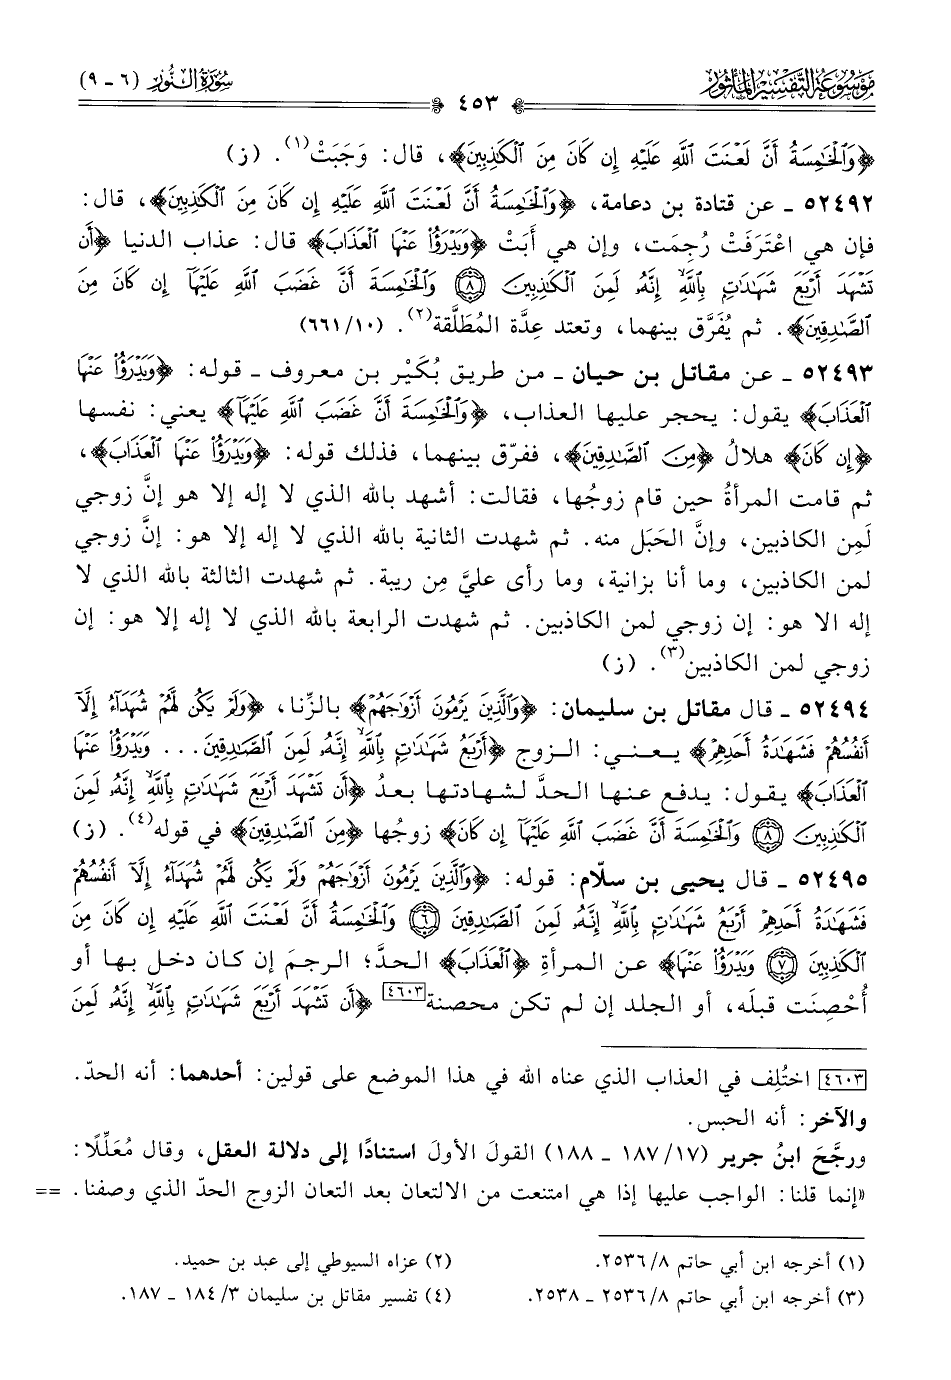 موسوعة التفسير المأثور
سورة النور (٦ - ٩)
٤٥٣
﴿وَٱلۡخَٰمِسَةُ أَنَّ لَعۡنَتَ ٱللَّهِ عَلَيۡهِ إِن كَانَ مِنَ ٱلۡكَٰذِبِينَ﴾، قال: وَجَبَتْ(١). (ز)
٥٢٤٩٢ - عن قتادة بن دعامة، ﴿وَٱلۡخَٰمِسَةُ أَنَّ لَعۡنَتَ ٱللَّهِ عَلَيۡهِ إِن كَانَ مِنَ ٱلۡكَٰذِبِينَ﴾، قال:
فإن هي اعْتَرَفَتْ رُجِمَت، وإن هي أَبَتْ ﴿وَيَدۡرَؤُاْ عَنۡهَا ٱلۡعَذَابَ﴾ قال: عذاب الدنيا ﴿أَن
تَشۡهَدَ أَرۡبَعَ شَهَٰدَٰتِۭ بِٱللَّهِ إِنَّهُۥ لَمِنَ ٱلۡكَٰذِبِينَ ٨ وَٱلۡخَٰمِسَةَ أَنَّ غَضَبَ ٱللَّهِ عَلَيۡهَآ إِن كَانَ مِنَ
ٱلصَّٰدِقِينَ﴾. ثم يُفَرَّق بينهما، وتعتد عِدَّة المُطَلَّقة(٢). (١٠/٦٦١)
٥٢٤٩٣ - عن مقاتل بن حيان - من طريق بُكَيْر بن معروف - قوله: ﴿وَيَدۡرَؤُاْ عَنۡهَا
ٱلۡعَذَابَ﴾ يقول: يحجر عليها العذاب، ﴿وَٱلۡخَٰمِسَةَ أَنَّ غَضَبَ ٱللَّهِ عَلَيۡهَآ﴾ يعني: نفسها
﴿إِن كَانَ﴾ هلالُ ﴿مِنَ ٱلصَّٰدِقِينَ﴾، ففرّق بينهما، فذلك قوله: ﴿وَيَدۡرَؤُاْ عَنۡهَا ٱلۡعَذَابَ﴾،
ثم قامت المرأةُ حين قام زوجُها، فقالت: أشهد بالله الذي لا إله إلا هو إنَّ زوجي
لَمِن الكاذبين، وإنَّ الحَبَل منه. ثم شهدت الثانية بالله الذي لا إله إلا هو: إنَّ زوجي
لمن الكاذبين، وما أنا بزانية، وما رأى عليَّ مِن ريبة. ثم شهدت الثالثة بالله الذي لا
إله الا هو: إن زوجي لمن الكاذبين. ثم شهدت الرابعة بالله الذي لا إله إلا هو: إن
زوجي لمن الكاذبين(٣). (ز)
٥٢٤٩٤ - قال مقاتل بن سليمان: ﴿وَٱلَّذِينَ يَرۡمُونَ أَزۡوَٰجَهُمۡ﴾ بالزِّنا، ﴿وَلَمۡ يَكُن لَّهُمۡ شُهَدَآءُ إِلَّآ
أَنفُسُهُمۡ فَشَهَٰدَةُ أَحَدِهِمۡ﴾ يعني: الزوج ﴿أَرۡبَعُ شَهَٰدَٰتِۭ بِٱللَّهِ إِنَّهُۥ لَمِنَ ٱلصَّٰدِقِينَ... وَيَدۡرَؤُاْ عَنۡهَا
ٱلۡعَذَابَ﴾ يقول: يدفع عنها الحدَّ لشهادتها بعدُ ﴿أَن تَشۡهَدَ أَرۡبَعَ شَهَٰدَٰتِۭ بِٱللَّهِ إِنَّهُۥ لَمِنَ
ٱلۡكَٰذِبِينَ ٨ وَٱلۡخَٰمِسَةَ أَنَّ غَضَبَ ٱللَّهِ عَلَيۡهَآ إِن كَانَ﴾ زوجُها ﴿مِنَ ٱلصَّٰدِقِينَ﴾ في قوله(٤). (ز)
٥٢٤٩٥ - قال يحيى بن سلّام: قوله: ﴿وَٱلَّذِينَ يَرۡمُونَ أَزۡوَٰجَهُمۡ وَلَمۡ يَكُن لَّهُمۡ شُهَدَآءُ إِلَّآ أَنفُسُهُمۡ
فَشَهَٰدَةُ أَحَدِهِمۡ أَرۡبَعُ شَهَٰدَٰتِۭ بِٱللَّهِ إِنَّهُۥ لَمِنَ ٱلصَّٰدِقِينَ ٦ وَٱلۡخَٰمِسَةُ أَنَّ لَعۡنَتَ ٱللَّهِ عَلَيۡهِ إِن كَانَ مِنَ
ٱلۡكَٰذِبِينَ ٧ وَيَدۡرَؤُاْ عَنۡهَا﴾ عن المرأةِ ﴿ٱلۡعَذَابَ﴾ الحدَّ؛ الرجمَ إن كان دخل بها أو
أُحْصِنَت قبلَه، أو الجلد إن لم تكن محصنة[٤٦٠٣] ﴿أَن تَشۡهَدَ أَرۡبَعَ شَهَٰدَٰتِۭ بِٱللَّهِ إِنَّهُۥ لَمِنَ
[٤٦٠٣] اختُلِف في العذاب الذي عناه الله في هذا الموضع على قولين: أحدهما: أنه الحدّ.
والآخر: أنه الحبس.
ورجَّحَ ابنُ جرير (١٧/١٨٧ - ١٨٨) القولَ الأولَ استنادًا إلى دلالة العقل، وقال مُعَلِّلًا:
«إنما قلنا: الواجب عليها إذا هي امتنعت من الالتعان بعد التعان الزوج الحدّ الذي وصفنا. ==
(١) أخرجه ابن أبي حاتم ٨/٢٥٣٦.
(٢) عزاه السيوطي إلى عبد بن حميد.
(٣) أخرجه ابن أبي حاتم ٨/٢٥٣٦ - ٢٥٣٨.
(٤) تفسير مقاتل بن سليمان ٣/١٨٤ - ١٨٧.